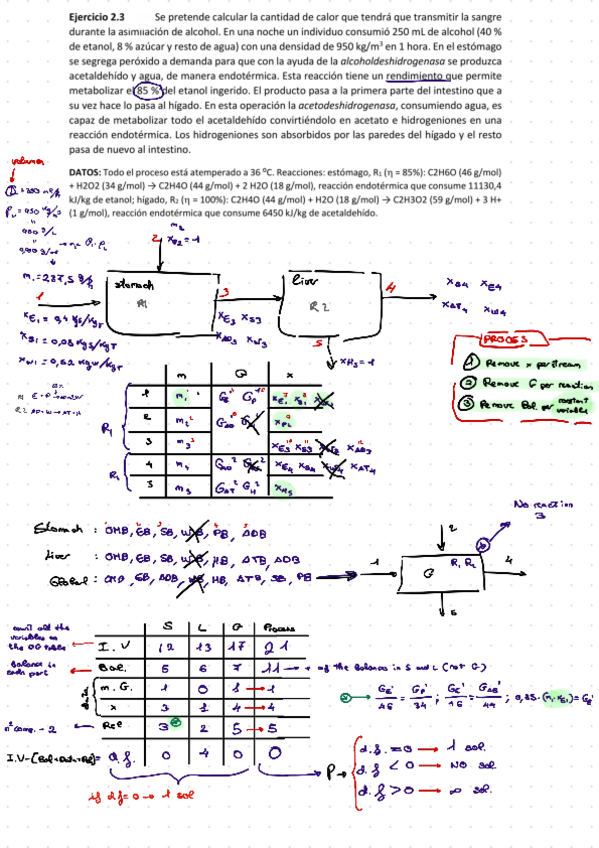 Ejercicio 2.3 Se pretende calcular la cantidad de calor que tendrá que transmitir la sangre
durante la asimilación de alcohol. En una noche un individuo consumió 250 mL de alcohol (40 %
de etanol, 8 % azúcar y resto de agua) con una densidad de 950 kg/m³ en 1 hora. En el estómago
se segrega peróxido a demanda para que con la ayuda de la alcoholdeshidrogenasa se produzca
acetaldehído y agua, de manera endotérmica. Esta reacción tiene un rendimiento que permite
metabolizar el 85 % del etanol ingerido. El producto pasa a la primera parte del intestino que a
su vez hace lo pasa al hígado. En esta operación la acetodeshidrogenasa, consumiendo agua, es
capaz de metabolizar todo el acetaldehído convirtiéndolo en acetato e hidrogeniones en una
reacción endotérmica. Los hidrogeniones son absorbidos por las paredes del hígado y el resto
pasa de nuevo al intestino.
volumen
DATOS: Todo el proceso está atemperado a 36 ºC. Reacciones: estómago, R₁ (η = 85%): C2H6O (46 g/mol)
+ H2O2 (34 g/mol) → C2H4O (44 g/mol) + 2 H2O (18 g/mol), reacción endotérmica que consume 11130,4
kJ/kg de etanol; hígado, R₂ (η = 100%): C2H4O (44 g/mol) + H2O (18 g/mol) → C2H3O2 (59 g/mol) + 3 H+
(1 g/mol), reacción endotérmica que consume 6450 kJ/kg de acetaldehído.
m₂
2 x_P2 = 1
m₁ = 237,5 g/h
1
stomach
R1
3
Liver
R2
4
5
x_E4 x_S4
x_AT4 x_W4
x_E1 = 0,4 kg/kgT
x_S1 = 0,08 kg S/kgT
x_W1 = 0,52 kg W/kgT
x_E3 x_S3
x_AD3 x_W3
x_H5 = 1
PROCESS
1 Remove x per stream
2 Remove G per reaction
3 Remove Bal per constant variables
m G x
R₁
R₂
1 m₁ G_E G_P x_E1 x_S1
2 m₂ G_AD x_P2
3 m₃ x_E3 x_S3 x_AD3
4 m₄ G_AD x_E4 x_S4 x_AT4
5 m₅ G_AT G_H x_H5
No reaction
3
Stomach : OMB, EB, SB, WB, PB, ADB
Liver : OMB, EB, SB, WB, HB, ATB, ADB
Global : OMB, EB, ADB, WB, HB, ATB, SB, PB
1 2 G R₁ R₂ 4 5
S L G Process
I.V 12 13 17 21
Bal. 5 6 7 11 → + of the Balances in S and L (not G)
m. G. 1 0 1 → 1
x 3 1 4 → 4
Rel 3 2 5 → 5
d.f. 0 4 0 0
balance in
each part
Data
nº comp. - 2
I.V-(Bal+Data+Rel)=
G_E/46 = G_P/34 ; G_E/46 = G_AD/44 ; 0,85·(m₁·x_E1) = G_E
if df=0 → 1 sol
P → d.f. = 0 → 1 sol.
d.f < 0 → NO sol.
d.f > 0 → ∞ sol.